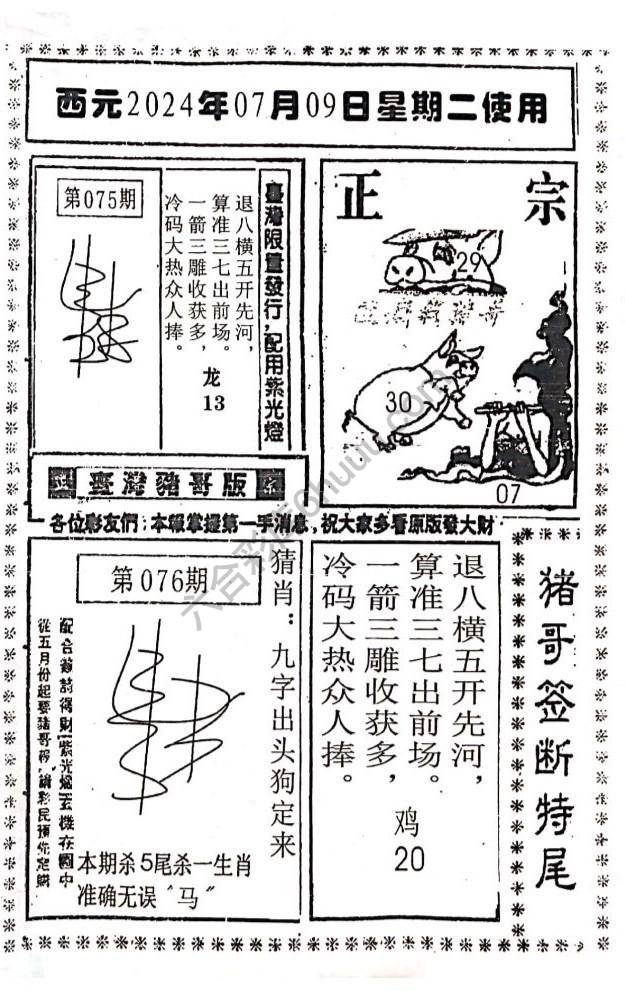 西元2024年07月09日星期二使用
第075期
退八横五开先河，
算准三七出前场。
一箭三雕收获多，
冷码大热众人捧。
龙
13
臺灣限量發行，配用紫光燈
正宗
29
30
07
正 臺灣豬哥版 宗
各位彩友們：本報掌握第一手消息，祝大家多看原版發大財
第076期
猜肖：九字出头狗定来
本期杀5尾杀一生肖
准确无误“马”
退八横五开先河，
算准三七出前场。
一箭三雕收获多，
冷码大热众人捧。
鸡
20
猪哥签断特尾